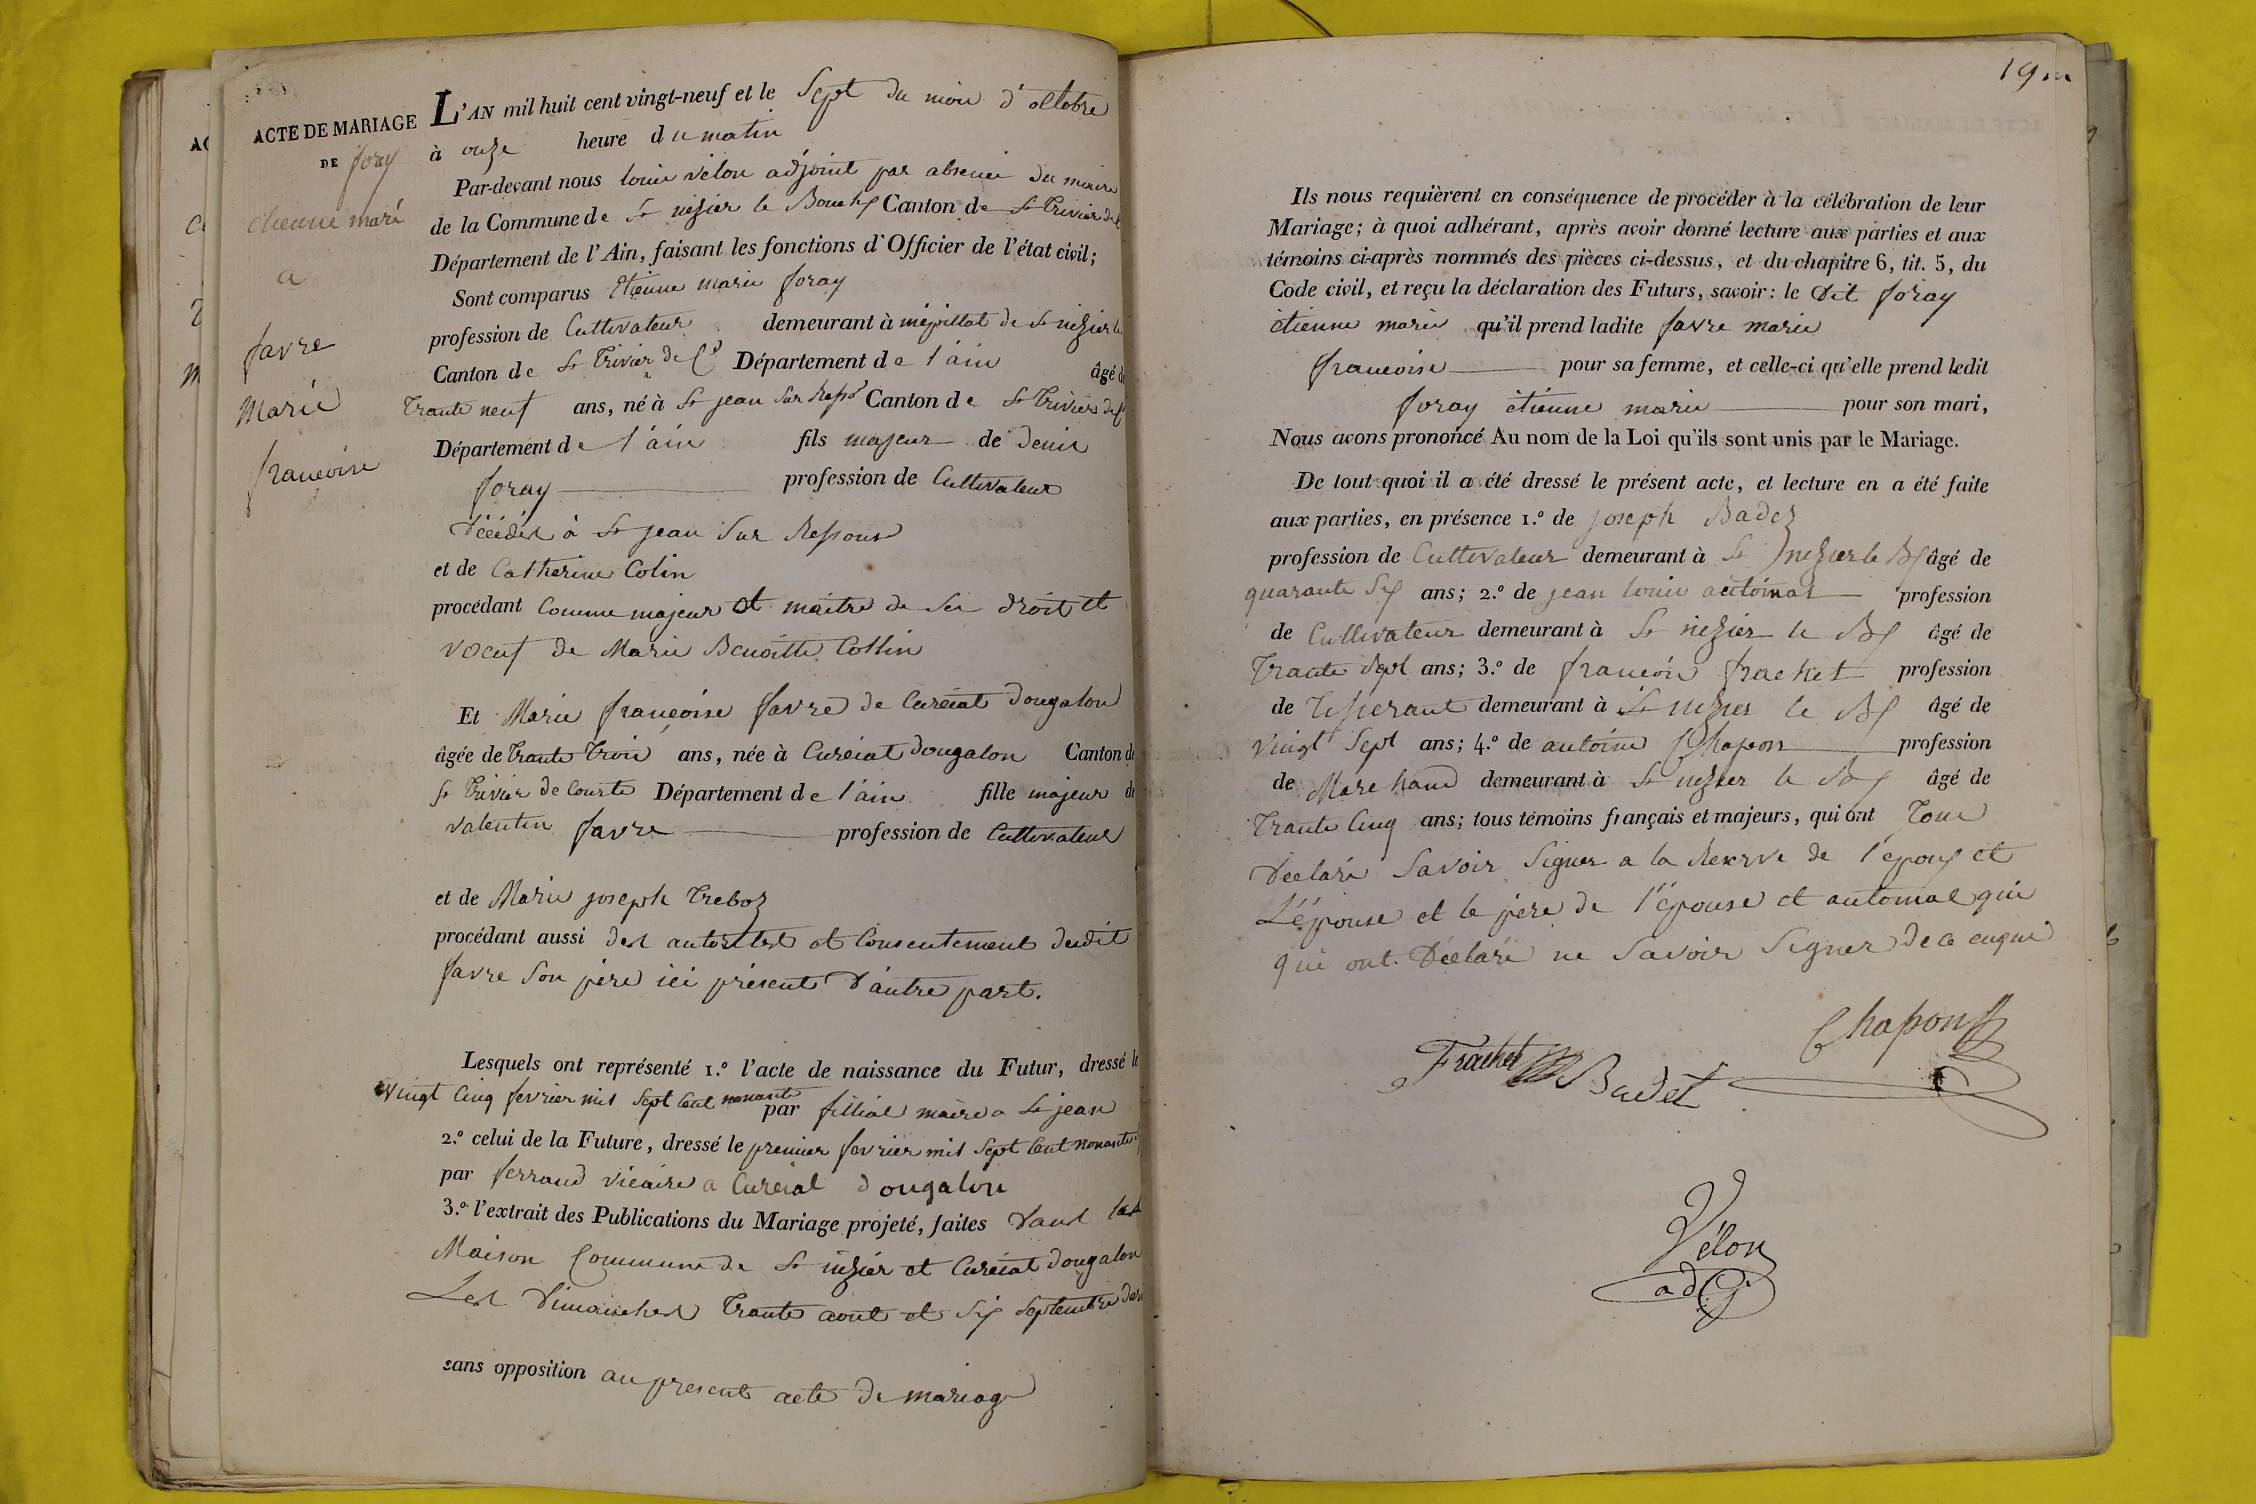 ACTE DE MARIAGE
DE foray
etienne marie
a
favre
Marie
francoise
L'AN mil huit cent vingt-neuf et le Sept du mois d'octobre
à onze heure du matin
Par-devant nous louis vélon adjoint par absence du maire
de la Commune de St nizier le Bouchx Canton de St Trivier de
Département de l'Ain, faisant les fonctions d'Officier de l'état civil;
Sont comparus Etienne marie foray
profession de Cultivateur demeurant à mépillat de St nizier le
Canton de St Trivier de Cs Département de l'ain âgé de
Trante neuf ans, né à St jean Sur Resso Canton de St Trivier de
Département de l'ain fils majeur de denis
foray profession de Cultivateur
Décédés à St jean Sur Ressous
et de Catherine Colin
procédant Comme majeur et maitre de ses droit et
voeuf de Marie Benoitte Collin
Et Marie françoise favre de Curciat dougalon
âgée de Trante Trois ans, née à Curciat dougalon Canton de
St Trivier de Courte Département de l'ain fille majeur de
valentin favre profession de Cultivateur
et de Marie joseph Treboz
procédant aussi des autorités et Consentement dudit
favre Son père ici présent D'autre part.
Lesquels ont représenté 1.º l'acte de naissance du Futur, dressé le
vingt Cinq fevrier mil Sept Cent nonante par fillial maire a St jean
2.º celui de la Future, dressé le premier fevrier mil Sept Cent nonante
par ferrand vicaire a Curciat dougalon
3.º l'extrait des Publications du Mariage projeté, faites Dans las
Maison Commune de St nizier et Curciat dougalon
Les Dimanches Trante aout et Six Septembre der
sans opposition au present acte de mariage
19
Ils nous requièrent en conséquence de procéder à la célébration de leur
Mariage; à quoi adhérant, après avoir donné lecture aux parties et aux
témoins ci-après nommés des pièces ci-dessus, et du chapitre 6, tit. 5, du
Code civil, et reçu la déclaration des Futurs, savoir: le dit foray
étienne marie qu'il prend ladite favre marie
francoise pour sa femme, et celle-ci qu'elle prend ledit
foray étienne marie pour son mari,
Nous avons prononcé Au nom de la Loi qu'ils sont unis par le Mariage.
De tout quoi il a été dressé le présent acte, et lecture en a été faite
aux parties, en présence 1.º de joseph Badez
profession de Cultivateur demeurant à St nizier le Bx âgé de
quarante Six ans; 2.º de jean louis autoinal profession
de Cultivateur demeurant à St nizier le Bx âgé de
Trante Sept ans; 3.º de francois frachet profession
de Tisserant demeurant à St nizier le Bx âgé de
vingt Sept ans; 4.º de antoine Chapon profession
de Marchand demeurant à St nizier le Bx âgé de
Trante Cinq ans; tous témoins français et majeurs, qui ont Tous
Déclaré Savoir Signer a la Reserve de l'epoux et
L'épouse et le père de l'épouse et automal qui
qui ont Déclaré ne Savoir Signer de ce enquis
Chapon
Frachet Badet
Vélon
adj